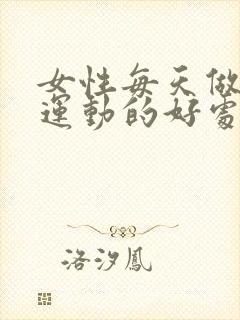 女性每天做
運動的好處
洛汐鳳